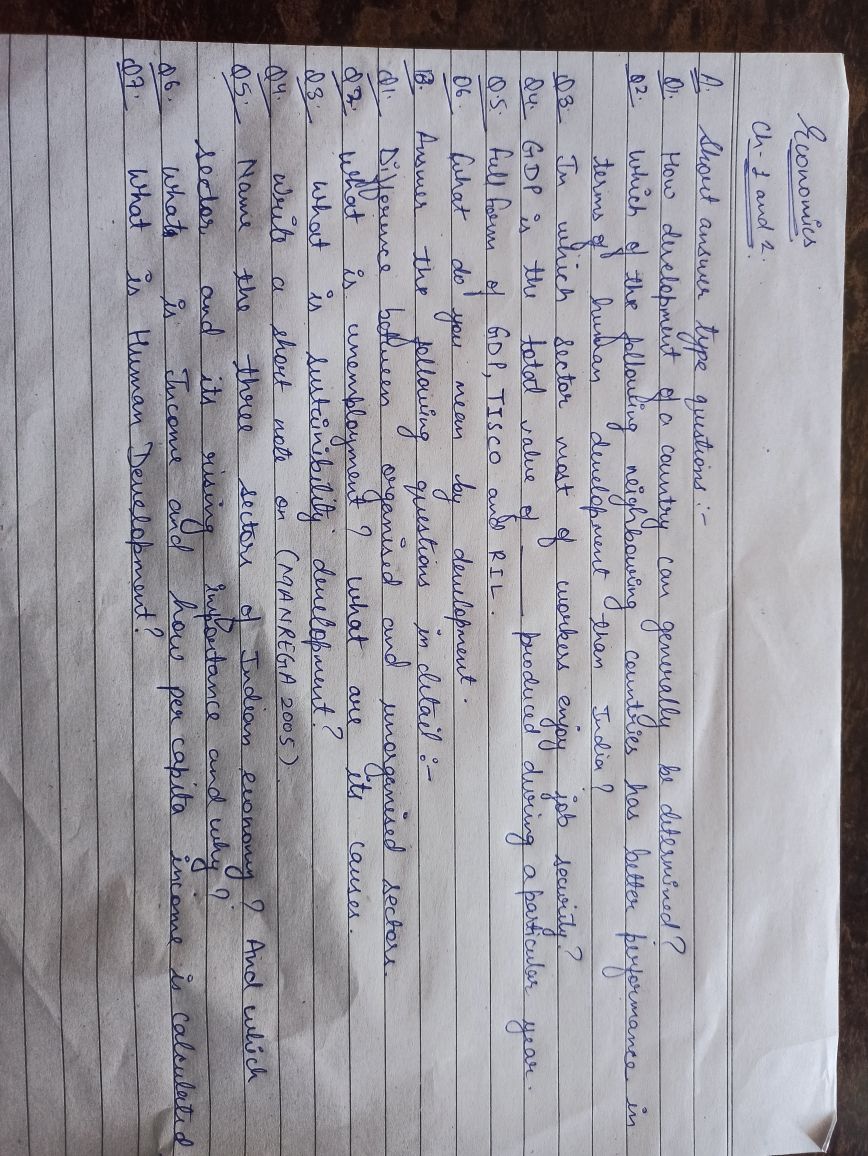 Economics
Ch- 1 and 2.
A. Short answer type questions :-
Q1. How development of a country can generally be determined?
Q2. which of the following neighbouring countries has better performance in
terms of human development than India?
Q3. In which sector most of workers enjoy job security?
Q4. GDP is the total value of ____ produced during a particular year.
Q.5. full form of GDP, TISCO and RIL.
Q6. What do you mean by development.
B. Answer the following questions in detail :-
Q1. Difference between organised and unorganised sectors.
Q2. What is unemployment? what are its causes.
Q3. What is sustainibility development?
Q4. Write a short note on (MANREGA 2005)
Q5. Name the three sectors of Indian economy? And which
sector, and its rising importance and why?
Q6. What is Income and how per capita income is calculated
Q7. What is Human Development?